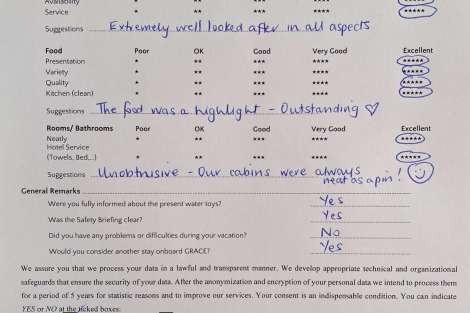 Availability * ** *** **** *****
Service * ** *** **** *****
Suggestions Extremely well looked after in all aspects
Food Poor OK Good Very Good Excellent
Presentation * ** *** **** *****
Variety * ** *** **** *****
Quality * ** *** **** *****
Kitchen (clean) * ** *** **** *****
Suggestions The food was a highlight - Outstanding ♡
Rooms/ Bathrooms Poor OK Good Very Good Excellent
Neatly * ** *** **** *****
Hotel Service
(Towels, Bed,..) * ** *** **** *****
Suggestions Unobtrusive - Our cabins were always
neat as a pin! ☺
General Remarks
Were you fully informed about the present water toys? Yes
Was the Safety Briefing clear? Yes
Did you have any problems or difficulties during your vacation? No
Would you consider another stay onboard GRACE? Yes
We assure you that we process your data in a lawful and transparent manner. We develop appropriate technical and organizational
safeguards that ensure the security of your data. After the anonymization and encryption of your personal data we intend to process them
for a period of 5 years for statistic reasons and to improve our services. Your consent is an indispensable condition. You can indicate
YES or NO at the ticked boxes: